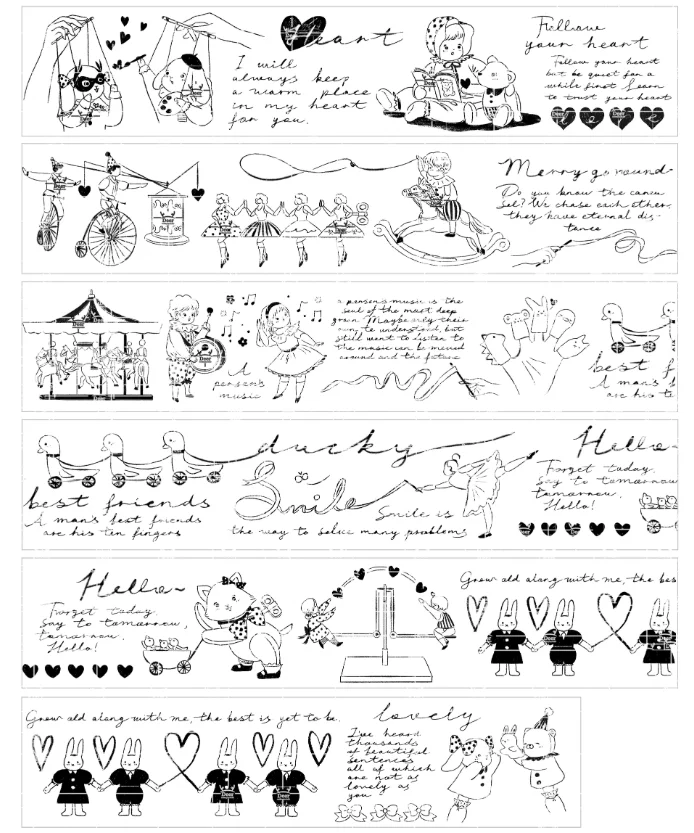 Heart
I will
always keep
a warm place
in my heart
for you.
Follow
your heart
Follow your heart
but be quiet for a
while first learn
to trust your heart
Deer
Merry go round
Do you know the carou
sel? We chase each other,
they have eternal dis-
tance
Deer
a person's music is the
soul of the most deep
grown. Maybe only their
own, to understand, but
still want to listen to
the music can be moved
around and the future
A
person's
music
best f
A man's b
are his te
ducky
best friends
A man's best friends
are his ten fingers
Smile
Smile is
the way to solve many problems
Hello~
Forget today,
Say to tomorrow
tomorrow.
Hello!
Hello~
Forget today,
Say to tomorrow,
tomorrow.
Hello!
Grow old along with me, the bes
Deer
Grow old along with me, the best is yet to be.
Deer
lovely
I've heard
thousands
of beautiful
sentences
all of which
are not as
lovely as
you